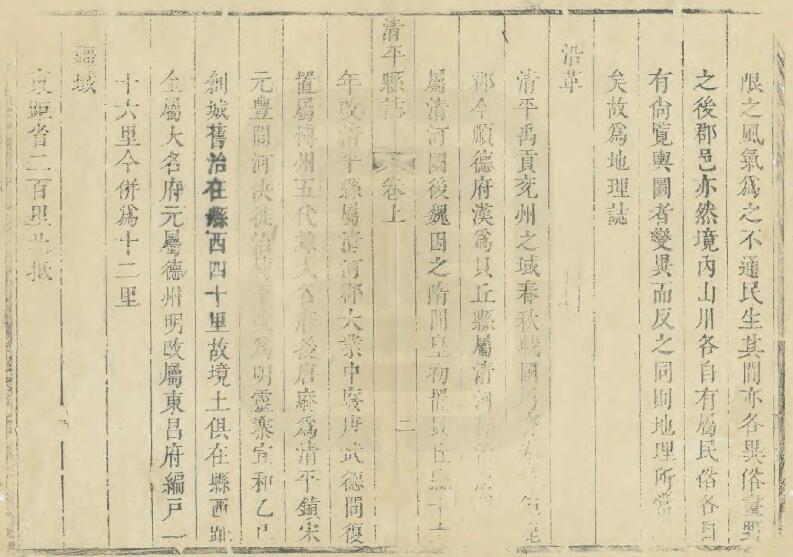 限之風氣爲之不通民生其間亦各異俗畫野
之後郡邑亦然境內山川各自有屬民俗各自
有尚覽輿圖者變異而反之同則地理所當
矣故爲地理誌
沿革
清平禹貢兖州之域春秋戰國
郡今順德府漢爲貝丘縣屬清河
屬清河國後魏因之隋開皇初
清平縣誌 卷上 二
年改清平縣屬清河郡大業中廢唐武德間復
置屬博州五代隸大名府後唐廢爲清平鎮宋
元豐間河決徙治 爲明靈寨宣和乙巳
創城舊治在縣西四十里故境土俱在縣西
金屬大名府元屬德州明改屬東昌府編戶一
十六里今併爲十二里
疆域
東距省二百里北抵